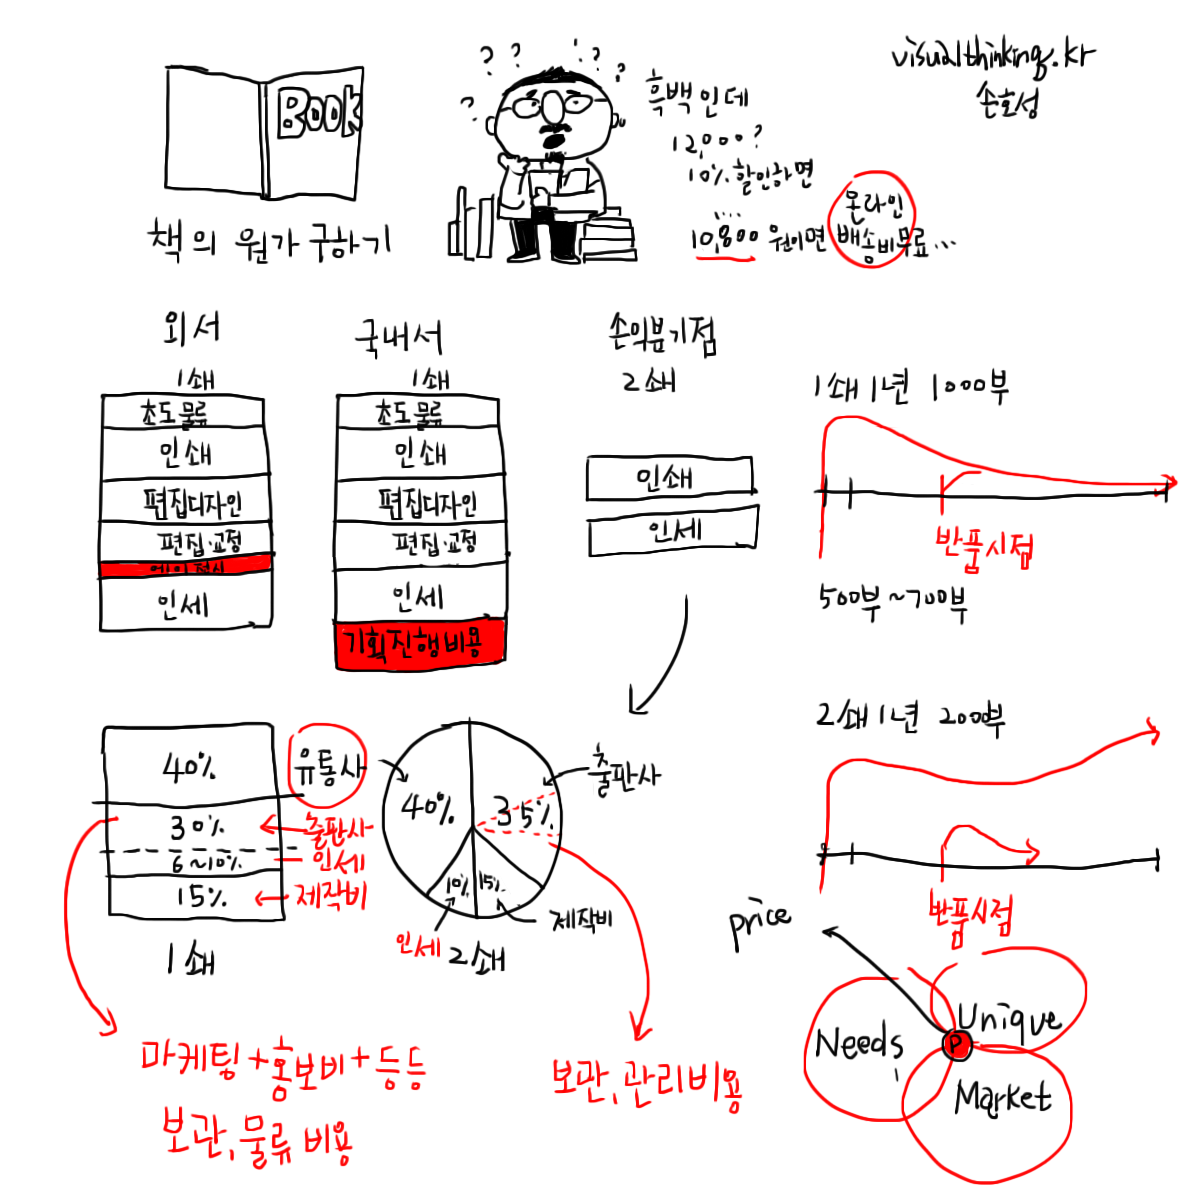 visualthinking.kr
손호성
BOOK
책의 원가 구하기
? ? ? ? ? ?
흑백인데
12,000?
10% 할인하면
....
10,800 원이면
온라인
배송비무료...
외서
1쇄
초도물류
인쇄
편집디자인
편집·교정
에이전시
인세
국내서
1쇄
초도물류
인쇄
편집디자인
편집·교정
인세
기획진행비용
손익분기점
2쇄
인쇄
인세
1쇄 1년 1000부
반품시점
500부~700부
2쇄 1년 200부
반품시점
40%
유통사
30%
출판사
6~10%
인세
15%
제작비
1쇄
40%
35%
출판사
10%
15%
인세
제작비
2쇄
마케팅+홍보비+등등
보관,물류 비용
보관,관리비용
price
Needs
Unique
P
Market